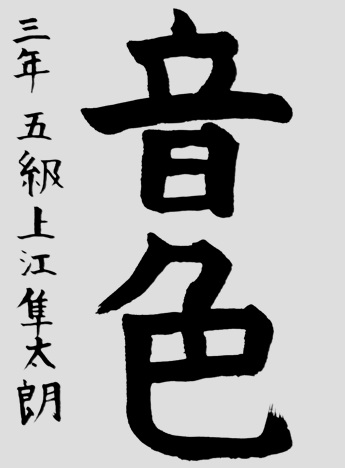 音色
三年 五級 上江隼太朗